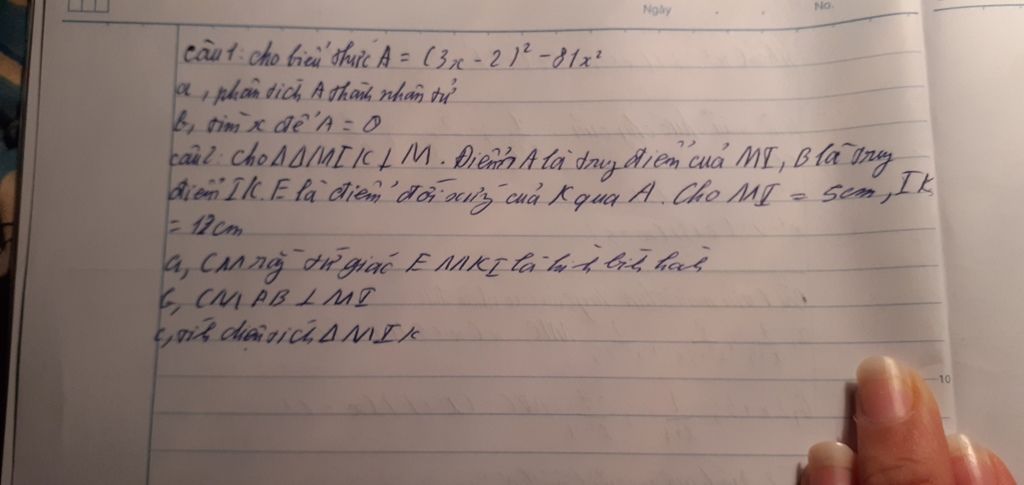 Ngày No.
câu1: cho biểu thức A = (3x - 2)² - 81x²
a, phân tích A thành nhân tử
b, tìm x để A = 0
câu2: Cho Δ ΔMIK ⊥ M. Điểm A là truy điểm của MI, B là truy
điểm IK. E là điểm đối xứng của K qua A. Cho MI = 5cm, IK
= 12cm
a, CM rằng tứ giác EMKI là hình bình hành
b, CM AB ⊥ MI
c, tính diện tích Δ MIK
10